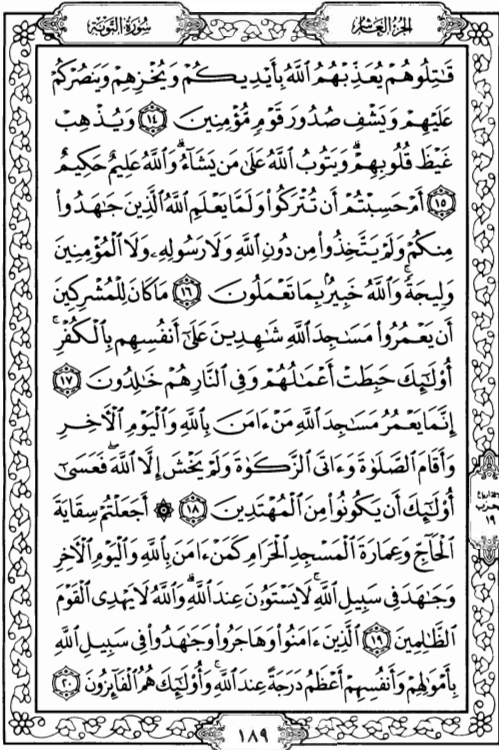 سُورَةُ التَّوْبَةِ
الجُزْءُ العَاشِرُ
قَـٰتِلُوهُمْ يُعَذِّبْهُمُ ٱللَّهُ بِأَيْدِيكُمْ وَيُخْزِهِمْ وَيَنصُرْكُمْ
عَلَيْهِمْ وَيَشْفِ صُدُورَ قَوْمٍ مُّؤْمِنِينَ ١٤ وَيُذْهِبْ
غَيْظَ قُلُوبِهِمْ ۗ وَيَتُوبُ ٱللَّهُ عَلَىٰ مَن يَشَآءُ ۗ وَٱللَّهُ عَلِيمٌ حَكِيمٌ
١٥ أَمْ حَسِبْتُمْ أَن تُتْرَكُوا۟ وَلَمَّا يَعْلَمِ ٱللَّهُ ٱلَّذِينَ جَـٰهَدُوا۟
مِنكُمْ وَلَمْ يَتَّخِذُوا۟ مِن دُونِ ٱللَّهِ وَلَا رَسُولِهِۦ وَلَا ٱلْمُؤْمِنِينَ
وَلِيجَةً ۚ وَٱللَّهُ خَبِيرٌۢ بِمَا تَعْمَلُونَ ١٦ مَا كَانَ لِلْمُشْرِكِينَ
أَن يَعْمُرُوا۟ مَسَـٰجِدَ ٱللَّهِ شَـٰهِدِينَ عَلَىٰٓ أَنفُسِهِم بِٱلْكُفْرِ ۚ
أُو۟لَـٰٓئِكَ حَبِطَتْ أَعْمَـٰلُهُمْ وَفِى ٱلنَّارِ هُمْ خَـٰلِدُونَ ١٧
إِنَّمَا يَعْمُرُ مَسَـٰجِدَ ٱللَّهِ مَنْ ءَامَنَ بِٱللَّهِ وَٱلْيَوْمِ ٱلْـَٔاخِرِ
وَأَقَامَ ٱلصَّلَوٰةَ وَءَاتَى ٱلزَّكَوٰةَ وَلَمْ يَخْشَ إِلَّا ٱللَّهَ ۖ فَعَسَىٰٓ
أُو۟لَـٰٓئِكَ أَن يَكُونُوا۟ مِنَ ٱلْمُهْتَدِينَ ١٨ ۞ أَجَعَلْتُمْ سِقَايَةَ
ٱلْحَآجِّ وَعِمَارَةَ ٱلْمَسْجِدِ ٱلْحَرَامِ كَمَنْ ءَامَنَ بِٱللَّهِ وَٱلْيَوْمِ ٱلْـَٔاخِرِ
وَجَـٰهَدَ فِى سَبِيلِ ٱللَّهِ ۚ لَا يَسْتَوُۥنَ عِندَ ٱللَّهِ ۗ وَٱللَّهُ لَا يَهْدِى ٱلْقَوْمَ
ٱلظَّـٰلِمِينَ ١٩ ٱلَّذِينَ ءَامَنُوا۟ وَهَاجَرُوا۟ وَجَـٰهَدُوا۟ فِى سَبِيلِ ٱللَّهِ
بِأَمْوَٰلِهِمْ وَأَنفُسِهِمْ أَعْظَمُ دَرَجَةً عِندَ ٱللَّهِ ۚ وَأُو۟لَـٰٓئِكَ هُمُ ٱلْفَآئِزُونَ ٢٠
حزب
١٩
١٨٩